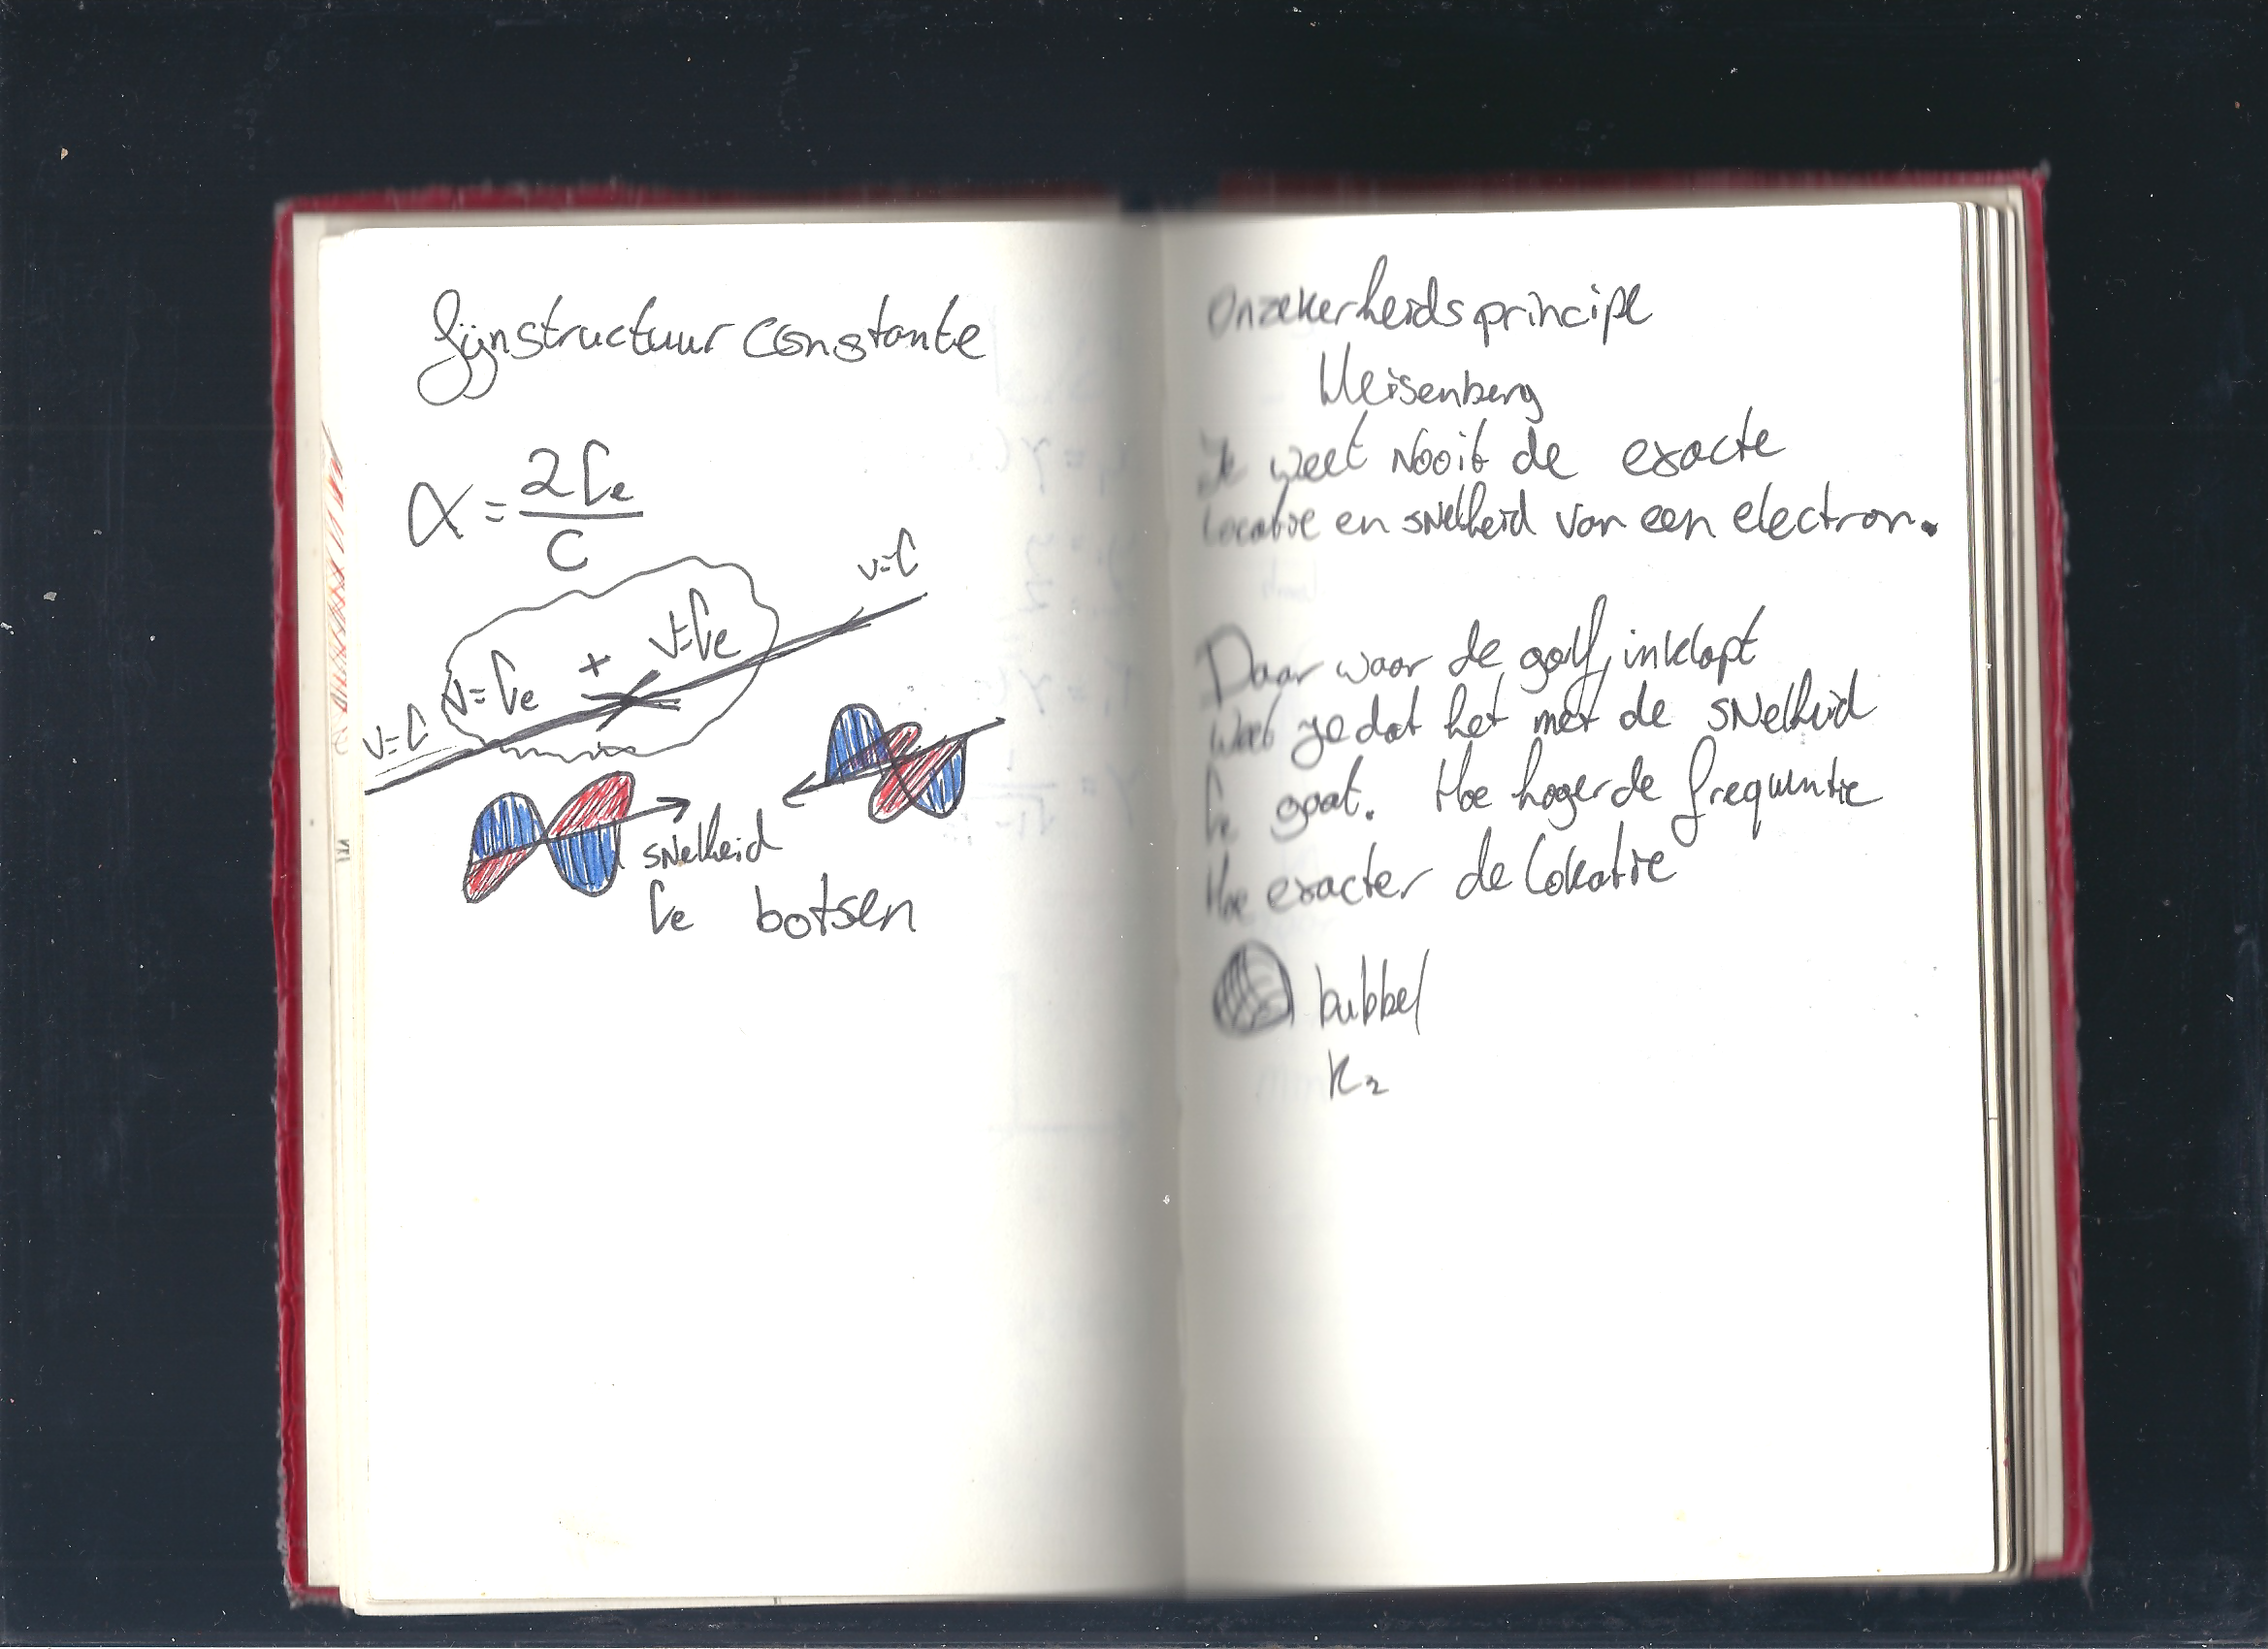 fijnstructuur constante
α = 2Ce / C
v=C
v=Ce + v=Ce
v=C
snelheid
Ce botsen
Onzekerheidsprincipe
Heisenberg
Je weet Nooit de exacte
Locatie en snelheid van een electron.
Daar waar de golf inklapt
weet je dat het met de snelheid
Ce gaat. Hoe hoger de frequentie
Hoe exacter de lokatie
bubbel